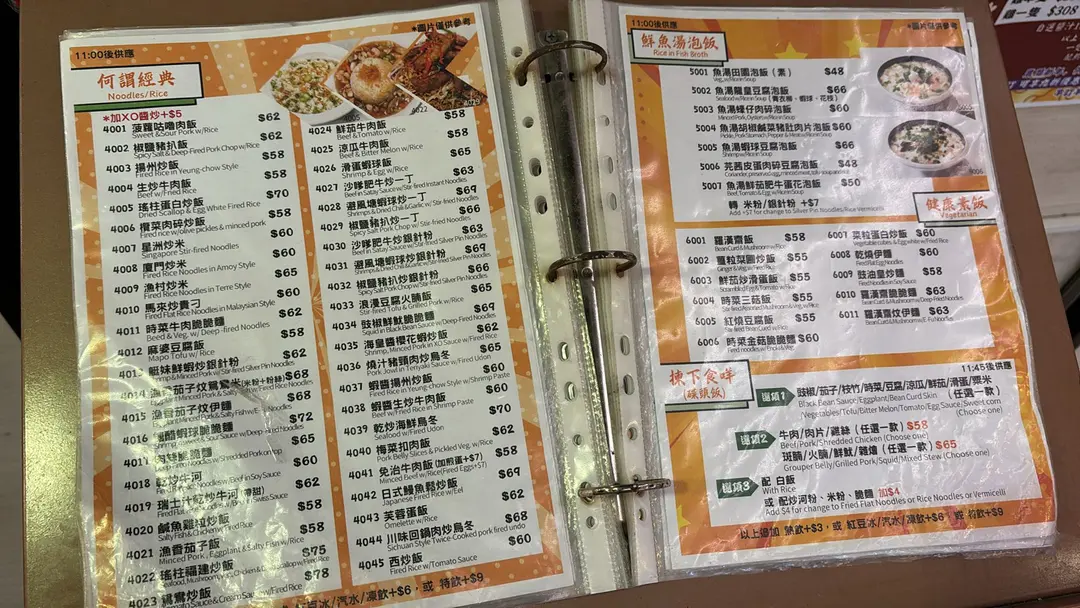 11:00後供應
*圖片僅供參考
何謂經典
Noodles/Rice
4022
*加XO醬炒+$5
4001 菠蘿咕嚕肉飯 $62
Sweet &Sour Pork w/Rice
4002 椒鹽豬扒飯 $62
Spicy Salt & Deep-Fired Pork Chop w/Rice
4003 揚州炒飯 $58
Fired Rice in Yeung-chow Style
4004 生炒牛肉飯 $58
Beef w/Fried Rice
4005 瑤柱蛋白炒飯 $70
Dried Scallop & Egg White Fired Rice
4006 欖菜肉碎炒飯 $58
Fired rice w/olive pickles & minced pork
4007 星洲炒米 $60
Singapore Stir-fired Noodles
4008 廈門炒米 $60
Fired Rice Noodles in Amoy Style
4009 漁村炒米 $65
Fired Rice Noodles in Terre Style
4010 馬來炒貴刁 $60
Fired Flat Rice Noodles in Malaysian Style
4011 時菜牛肉脆脆麵 $62
Beed & Veg. w/ Deep-fired Noodles
4012 麻婆豆腐飯 $58
Mapo Tofu w/Rice
4013 艇妹鮮蝦炒銀針粉 $62
4014 漁香茄子炆鴛鴦米(米粉+粉絲) $68
4015 漁香茄子炆伊麵 $60
4016 糖醋蝦球脆脆麵 $72
4017 肉絲脆脆麵 $65
Deep-Fired Noodles w/Shredded Pork on top
4018 乾炒牛河 $60
4019 瑞士汁炒牛河 (帶甜) $62
4020 鹹魚雞粒炒飯 $58
4021 漁香茄子飯 $58
Minced Pork, Eggplant & Salty Fish w/Rice
4022 瑤柱福建炒飯 $75
4023 鴛鴦炒飯 $78
Tomato Sauce & Cream Sauce w/Fired Rice
4024 鮮茄牛肉飯 $58
Beef & Tomato w/Rice
4025 涼瓜牛肉飯 $58
Beef & Bitter Melon w/Rice
4026 滑蛋蝦球飯 $65
Shrimp & Egg w/Rice
4027 沙嗲肥牛炒一丁 $63
Beef in Satay Sauce w/Stir-fired Instant Noodles
4028 避風塘蝦球炒一丁 $69
4029 椒鹽豬扒炒一丁 $66
4030 沙嗲肥牛炒銀針粉 $63
4031 避風塘蝦球炒銀針粉 $69
4032 椒鹽豬扒炒銀針粉 $66
4033 浪漫豆腐火腩飯 $65
Stir-fired Tofu & Grilled Pork w/Rice
4034 鼓椒鮮魷脆脆麵 $69
Squid in Black Bean Sauce w/Deep-fired Noodles
4035 海皇醬櫻花蝦炒飯 $62
Shrimp, Minced Pork in XO Sauce w/Fired Rice
4036 燒汁豬頸肉炒烏冬 $65
Pork Jowl in Teriyaki Sauce w/Fired Udon
4037 蝦醬揚州炒飯 $60
Fired Rice in Yeung-chow Style w/Shrimp Paste
4038 蝦醬生炒牛肉飯 $60
Beef w/Fried Rice in Shrimp Paste
4039 乾炒海鮮烏冬 $70
Seafood w/Fired Udon
4040 梅菜扣肉飯 $60
Pork Belly Slices & Pickled Veg. w/Rice
4041 免治牛肉飯 (加煎蛋+$7) $58
Minced Beef w/Rice(Fired Eggs+$7)
4042 日式鰻魚鬆炒飯 $69
Japanese Fired Rice w/Eel
4043 芙蓉蛋飯 $62
Omelette w/Rice
4044 川味回鍋肉炒烏冬 $68
Sichuan Style Twice-Cooked pork fired undo
4045 西炒飯 $60
Fired Rice w/Tomato Sauce
紅豆冰/汽水/凍飲+$6, 或 特飲+$9
11:00後供應
*圖片僅供參考
鮮魚湯泡飯
Rice in Fish Broth
5001 魚湯田園泡飯 (素) $48
Veg.w/Rice in Soup
5002 魚湯龍皇豆腐泡飯 $66
Seafood w/Rice in Soup (青衣柳、蝦球、花枝)
5003 魚湯蠔仔肉碎泡飯 $60
Minced Pork, Oyster w/Rice in Soup
5004 魚湯胡椒鹹菜豬肚肉片泡飯 $60
5005 魚湯蝦球豆腐泡飯 $66
Shrimp w/Rice in Soup
5006 芫茜皮蛋肉碎豆腐泡飯 $48
5007 魚湯鮮茄肥牛蛋花泡飯 $50
Beef, Tomato & Egg w/Rice in Soup
轉 米粉/銀針粉 +$7
Add +$7 for change to Silver Pin Noodles/Rice Vermicelli
健康素飯
Vegetarian
6001 羅漢齋飯 $58
Bean Curd & Mushroom w/Rice
6002 薑粒菜圃炒飯 $55
Ginger & Veg w/Fired Rice
6003 鮮茄炒滑蛋飯 $55
Scrambled Egg & Tomato w/Rice
6004 時菜三菇飯 $55
6005 紅燒豆腐飯 $55
Stir-fired Bean Curd w/Rice
6006 時菜金菇脆脆麵 $60
6007 菜粒蛋白炒飯 $60
Vegetable cubes & Egg white w/Fried Rice
6008 乾燒伊麵 $60
6009 鼓油皇炒麵 $58
Fired Noodles in Soy Sauce
6010 羅漢齋脆脆麵 $63
Bean Curd & Mushroom w/Deep-Fired Noodles
6011 羅漢齋炆伊麵 $63
Bean Curd & Mushroom w/E-Fu Noodles
揀下食咩
(碟頭飯)
11:45後供應
選項1
鼓椒/茄子/枝竹/時菜/豆腐/涼瓜/鮮茄/滑蛋/粟米
Black Bean Sauce/Eggplant/Bean Curd Skin (任選一款)
/Vegetables/Tofu/Bitter Melon/Tomato/Egg Sauce/Sweet Corn
(Choose one)
選項2
牛肉/肉片/雞絲 (任選一款) $58
Beef/Pork/Shredded Chicken (Choose one)
斑腩/火腩/鮮魷/雜燴 (任選一款) $65
Grouper Belly/Grilled Pork/Squid/Mixed Stew (Choose one)
選項3
配 白飯
With Rice
或 配炒河粉、米粉、脆麵 加$4
Add $4 for change to Fried Flat Noodles or Rice Noodles or Vermicelli
以上追加 熱飲+$3, 或 紅豆冰/汽水/凍飲+$6 或 特飲+$9
$308